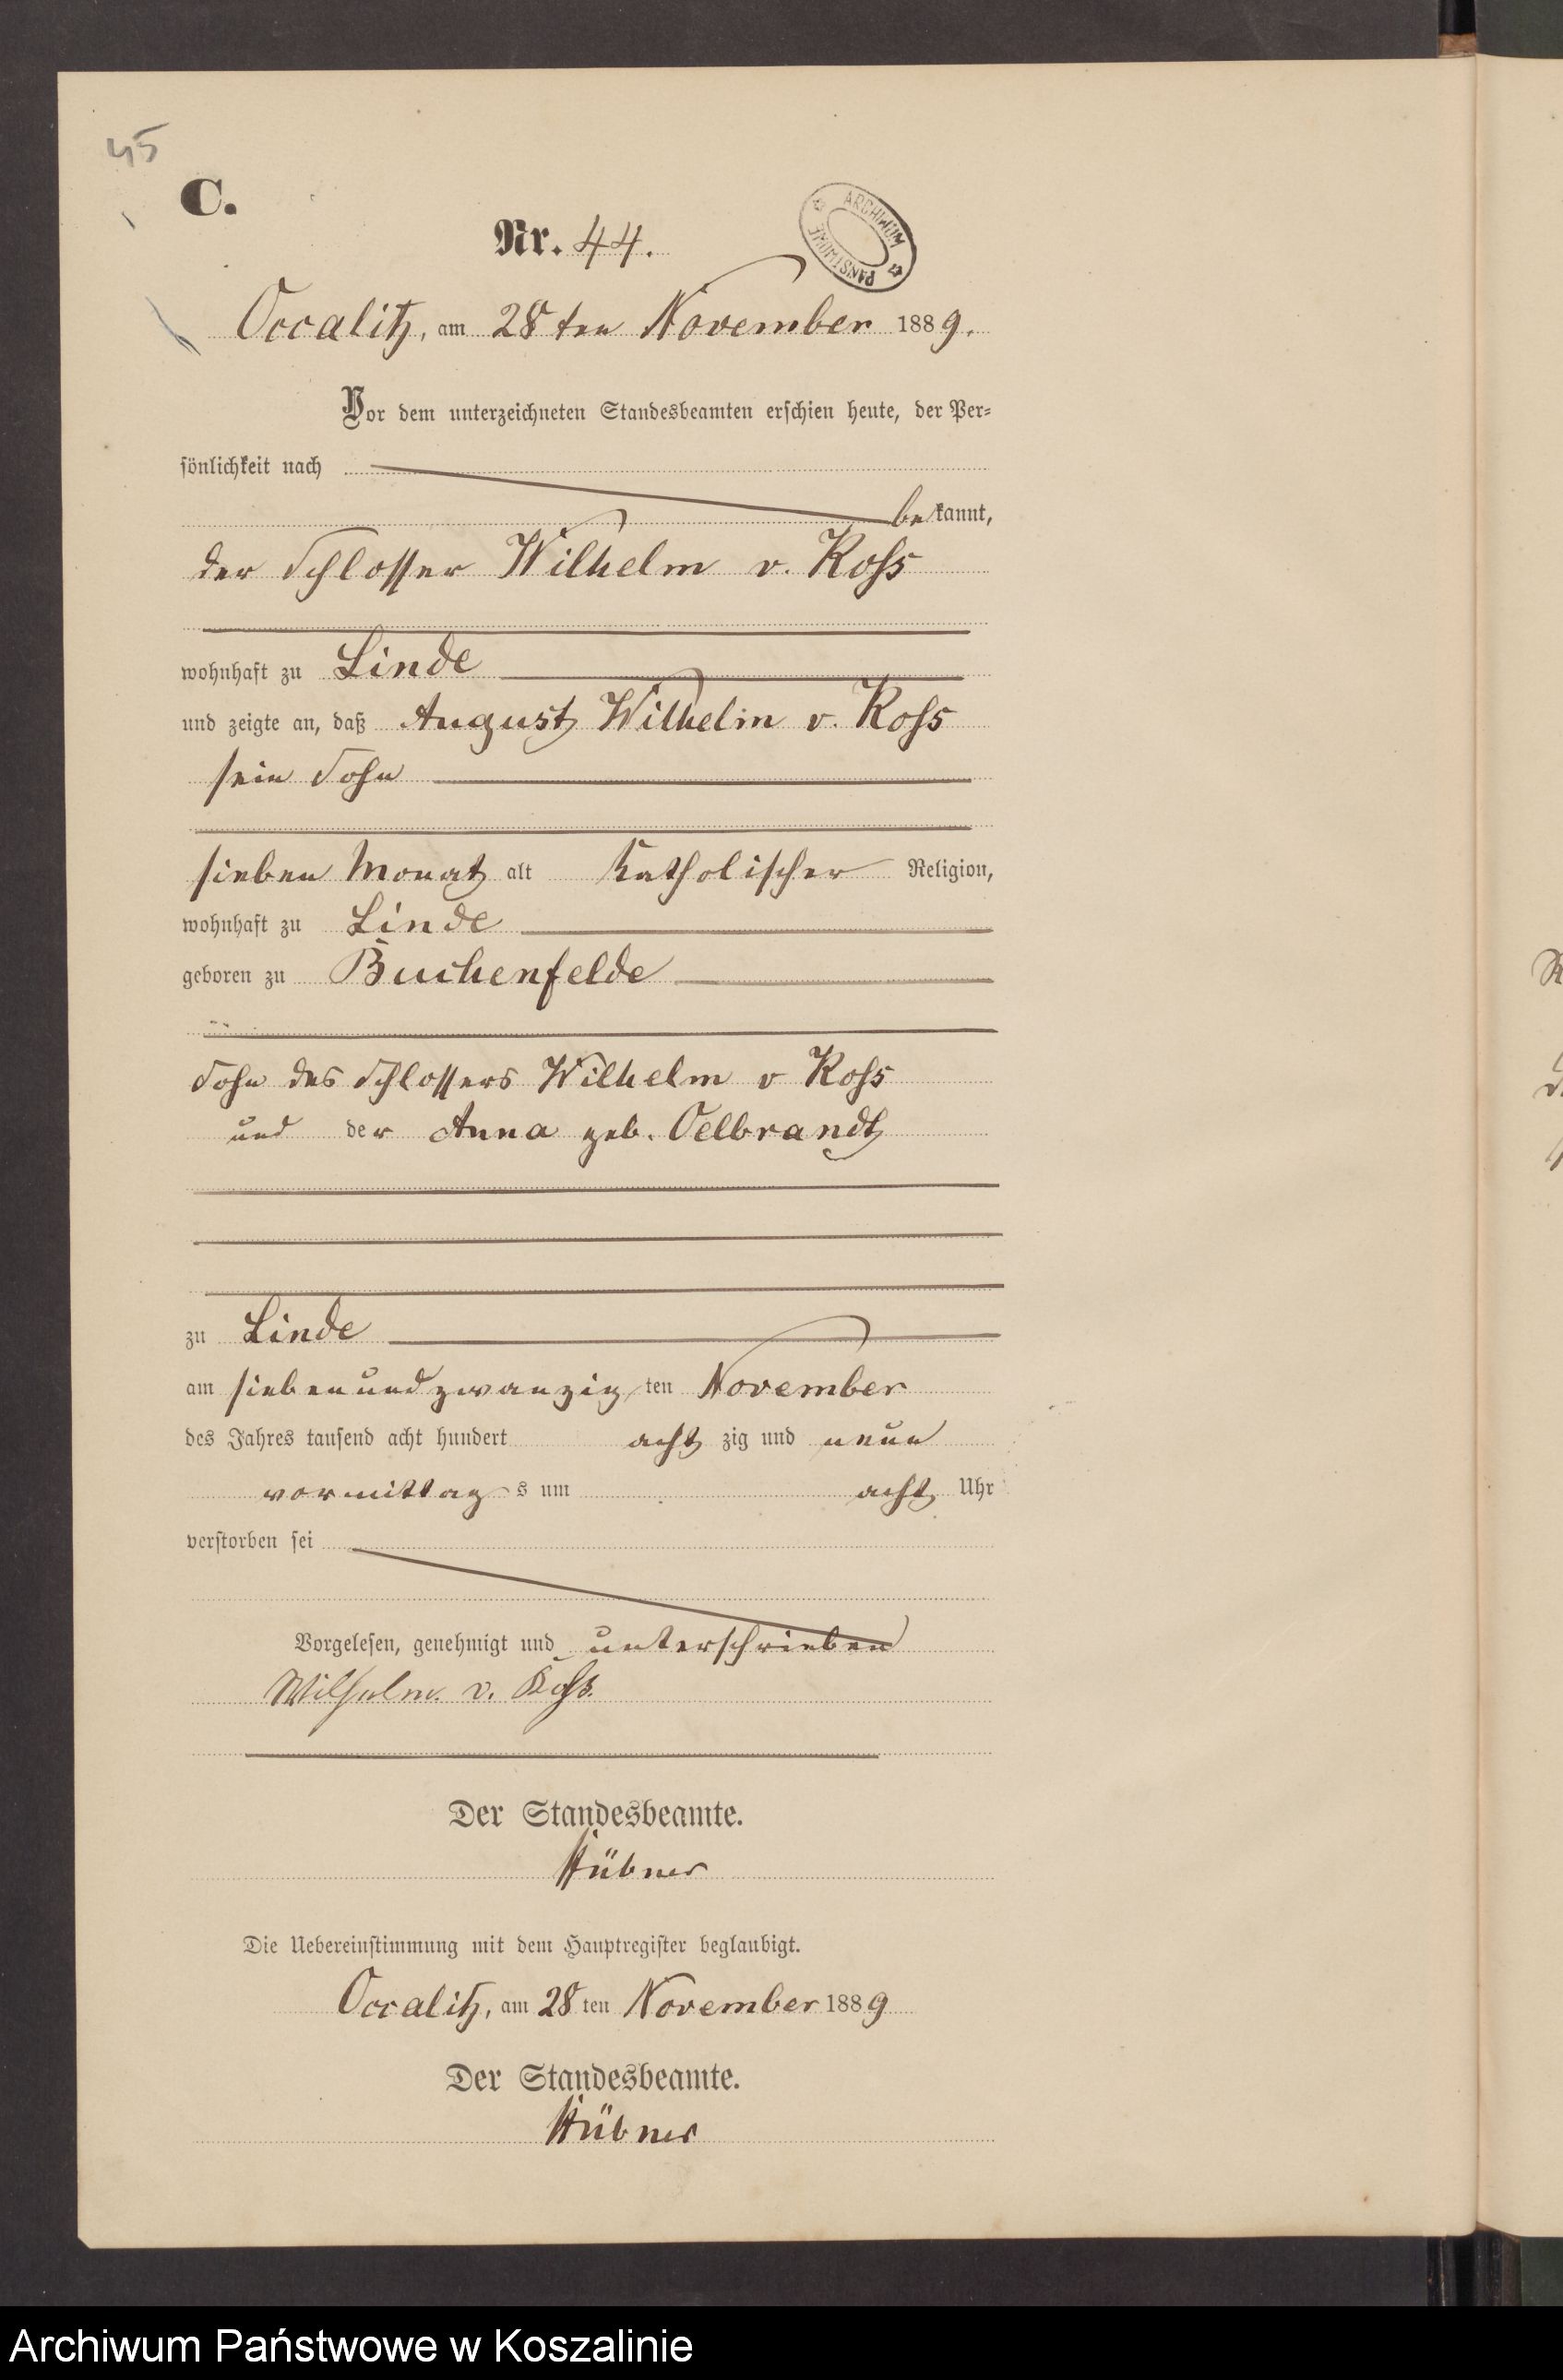 45
C.
Nr. 44.
ARCHIWUM PAŃSTWOWE
Occalitz, am 28ten November 1889.
Vor dem unterzeichneten Standesbeamten erschien heute, der Per-
sönlichkeit nach
bekannt,
der Schlosser Wilhelm v. Koss
wohnhaft zu Linde
und zeigte an, daß August Wilhelm v. Koss
sein Sohn
sieben Monat alt Katholischer Religion,
wohnhaft zu Linde
geboren zu Buchenfelde
Sohn des Schlossers Wilhelm v Koss
und der Anna geb. Oelbrandt
zu Linde
am siebenundzwanzigten November
des Jahres tausend acht hundert achtzig und neun
vormittags um acht Uhr
verstorben sei
Vorgelesen, genehmigt und unterschrieben
Wilhelm v. Koss.
Der Standesbeamte.
Hübner
Die Uebereinstimmung mit dem Hauptregister beglaubigt.
Occalitz, am 28ten November 1889
Der Standesbeamte.
Hübner
Archiwum Państwowe w Koszalinie